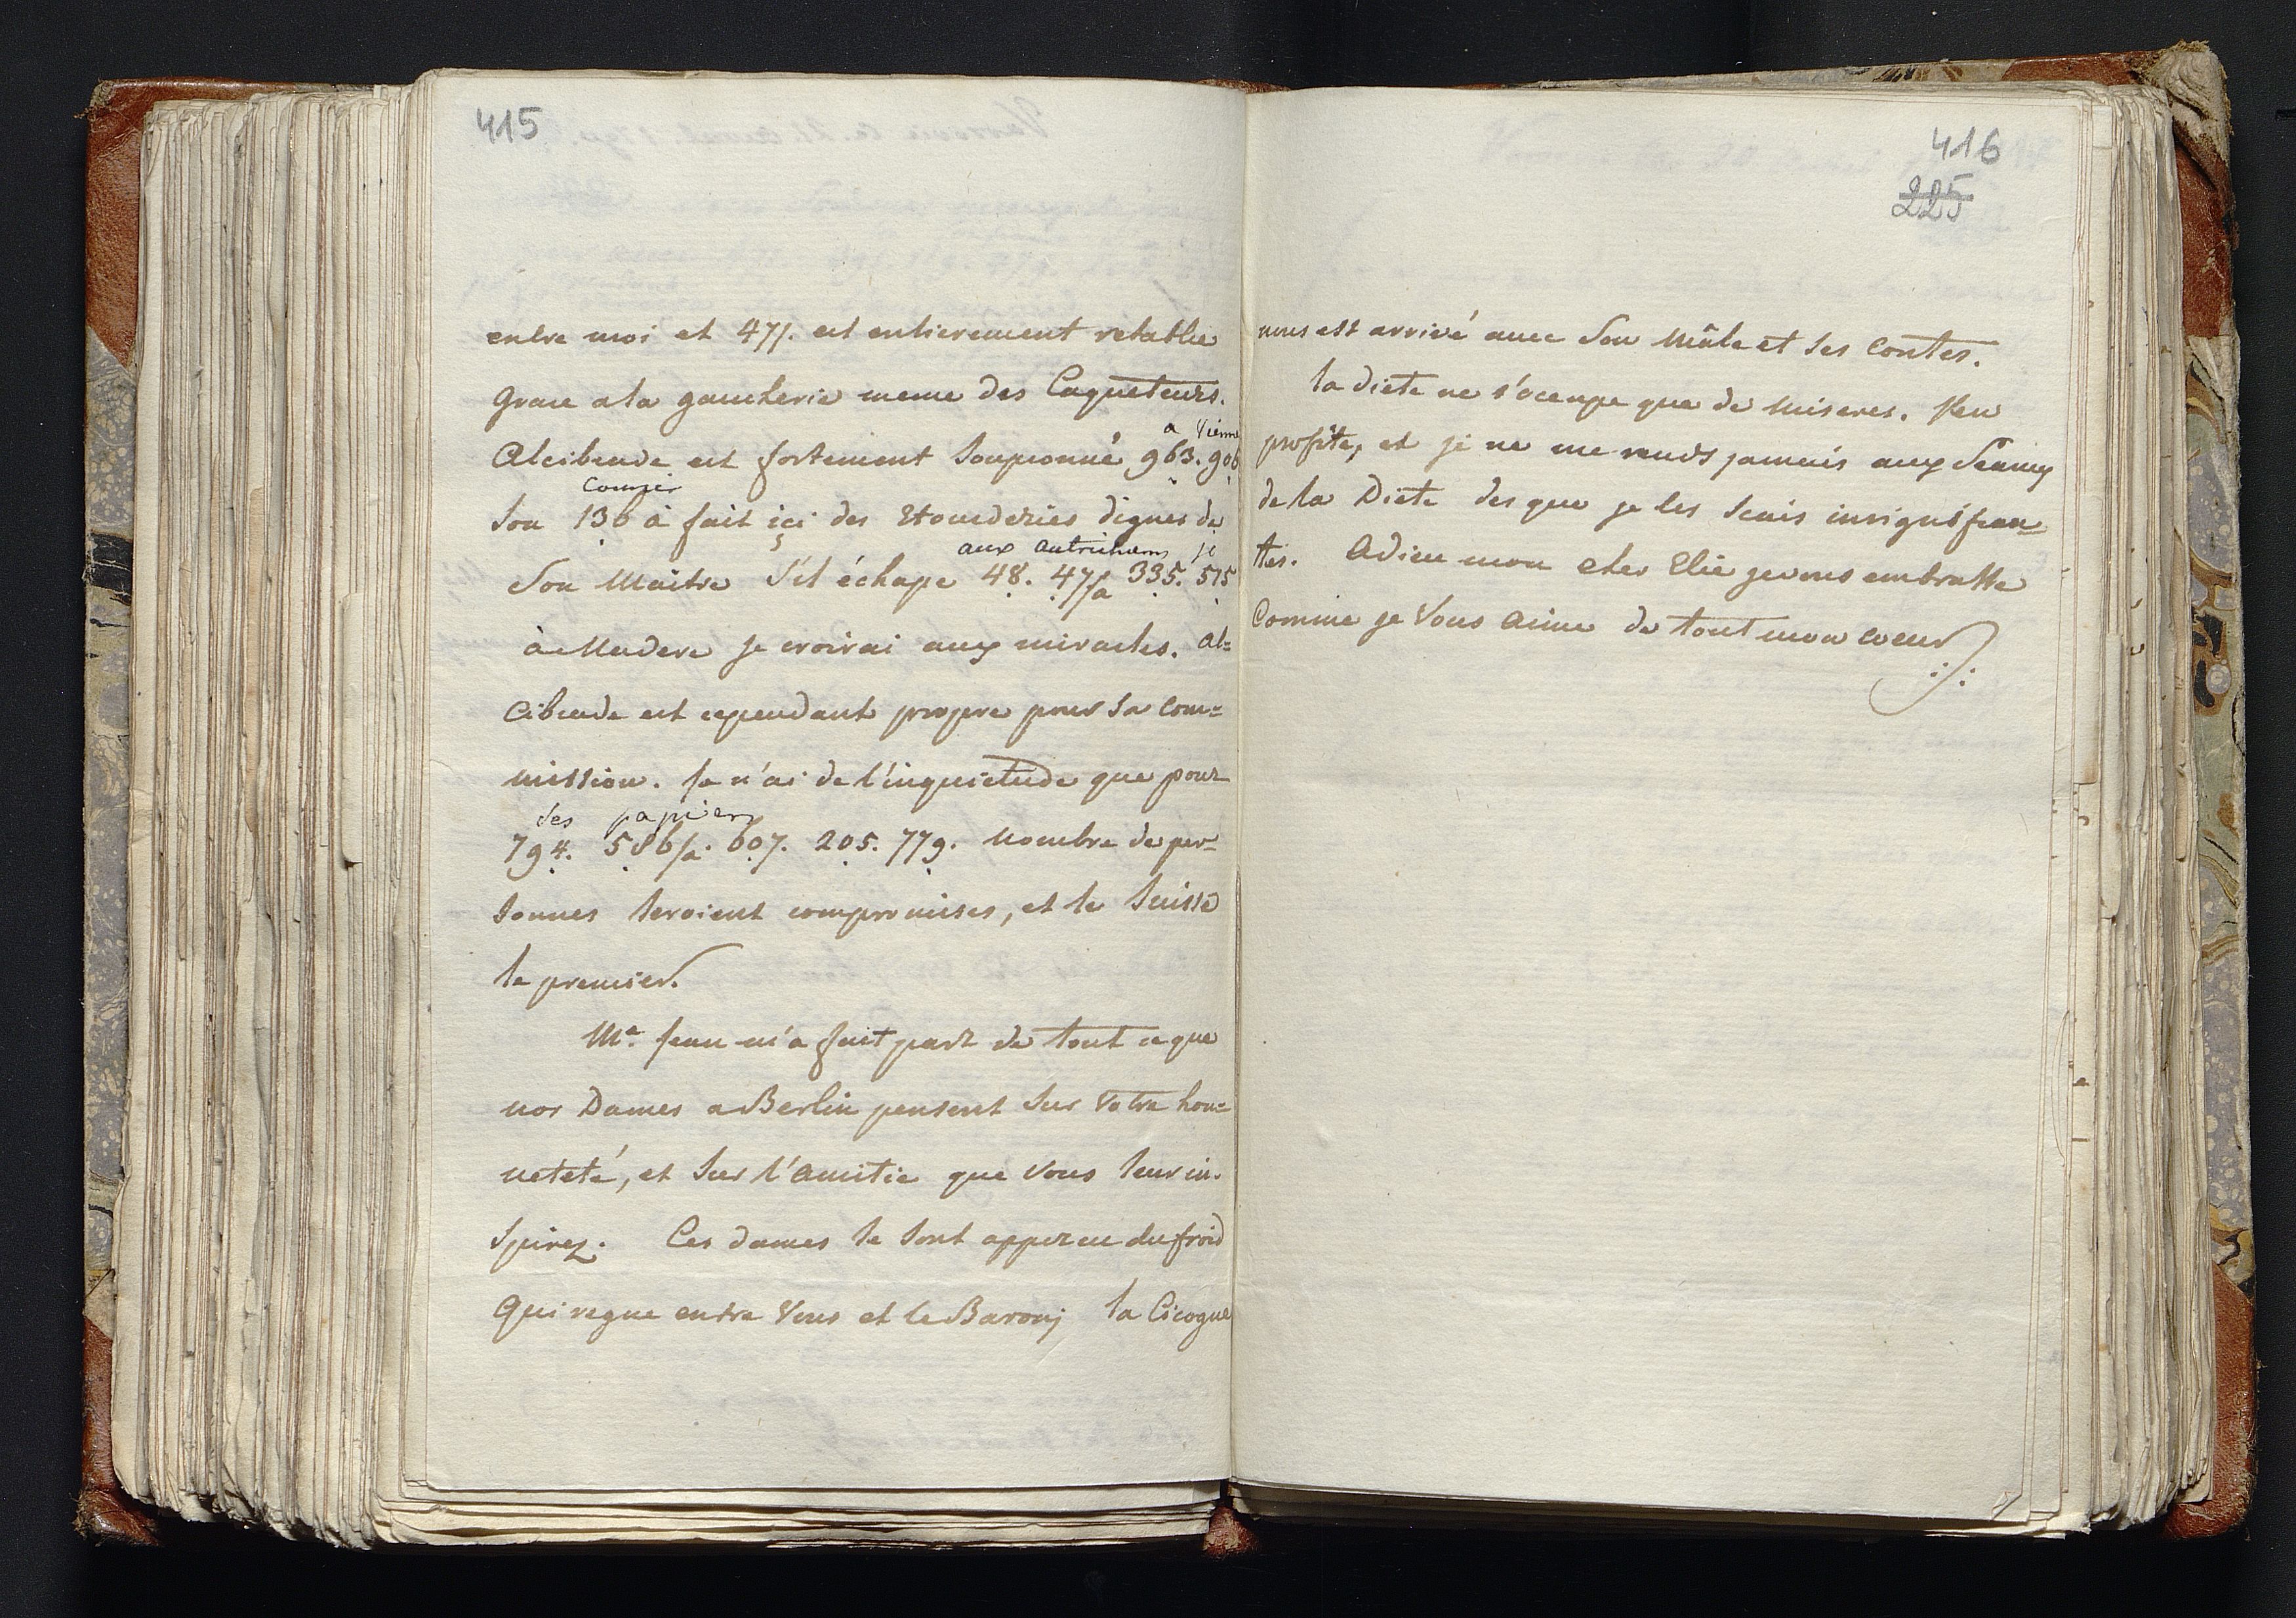 415
entre moi et 471. est entierement retablie
grace a la gaucherie meme des Caqueteurs.
a Vienne
Alcibiade est fortement soupçonné 963. 906
Courier
son 136 à fait içi des Etourderies dignes de
aux autrichiens je
son Maitre s'il échape 48. 47/a 335. 515
à Madere je croirai aux miracles. Al=
cibiade est cependant propre pour sa com=
mission. Je n'ai de l'inquietude que pour
des papiers
794. 586/a. 607. 205. 779. nombre de per=
sonnes seroient compromises, et le Suisse
le premier.
Mr. Jean m'a fait part de tout ce que
nos Dames a Berlin pensent sur votre hon=
neteté, et sur l'amitie que vous leur in.
spirez. Ces dames se sont apperçue du froid
qui regne entre Vous et le Baronj la Cicogne
416
225
nous est arrivé avec son Mâle et ses Contes.
la diete ne s'occupe que de miseres. J'en
profite, et je ne me rends jamais aux Seances
de la Diete des que je les scais insignifian=
tes. Adieu mon cher Elie je vous embrasse
Comme je Vous aime de tout mon coeur